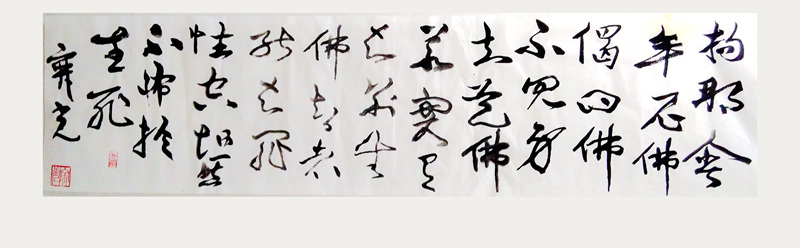 拘那含
牟尼佛
偈曰佛
不见身
知是佛
若实有
知别无
佛智者
能知罪
性空坦然
不怖於
生死
光